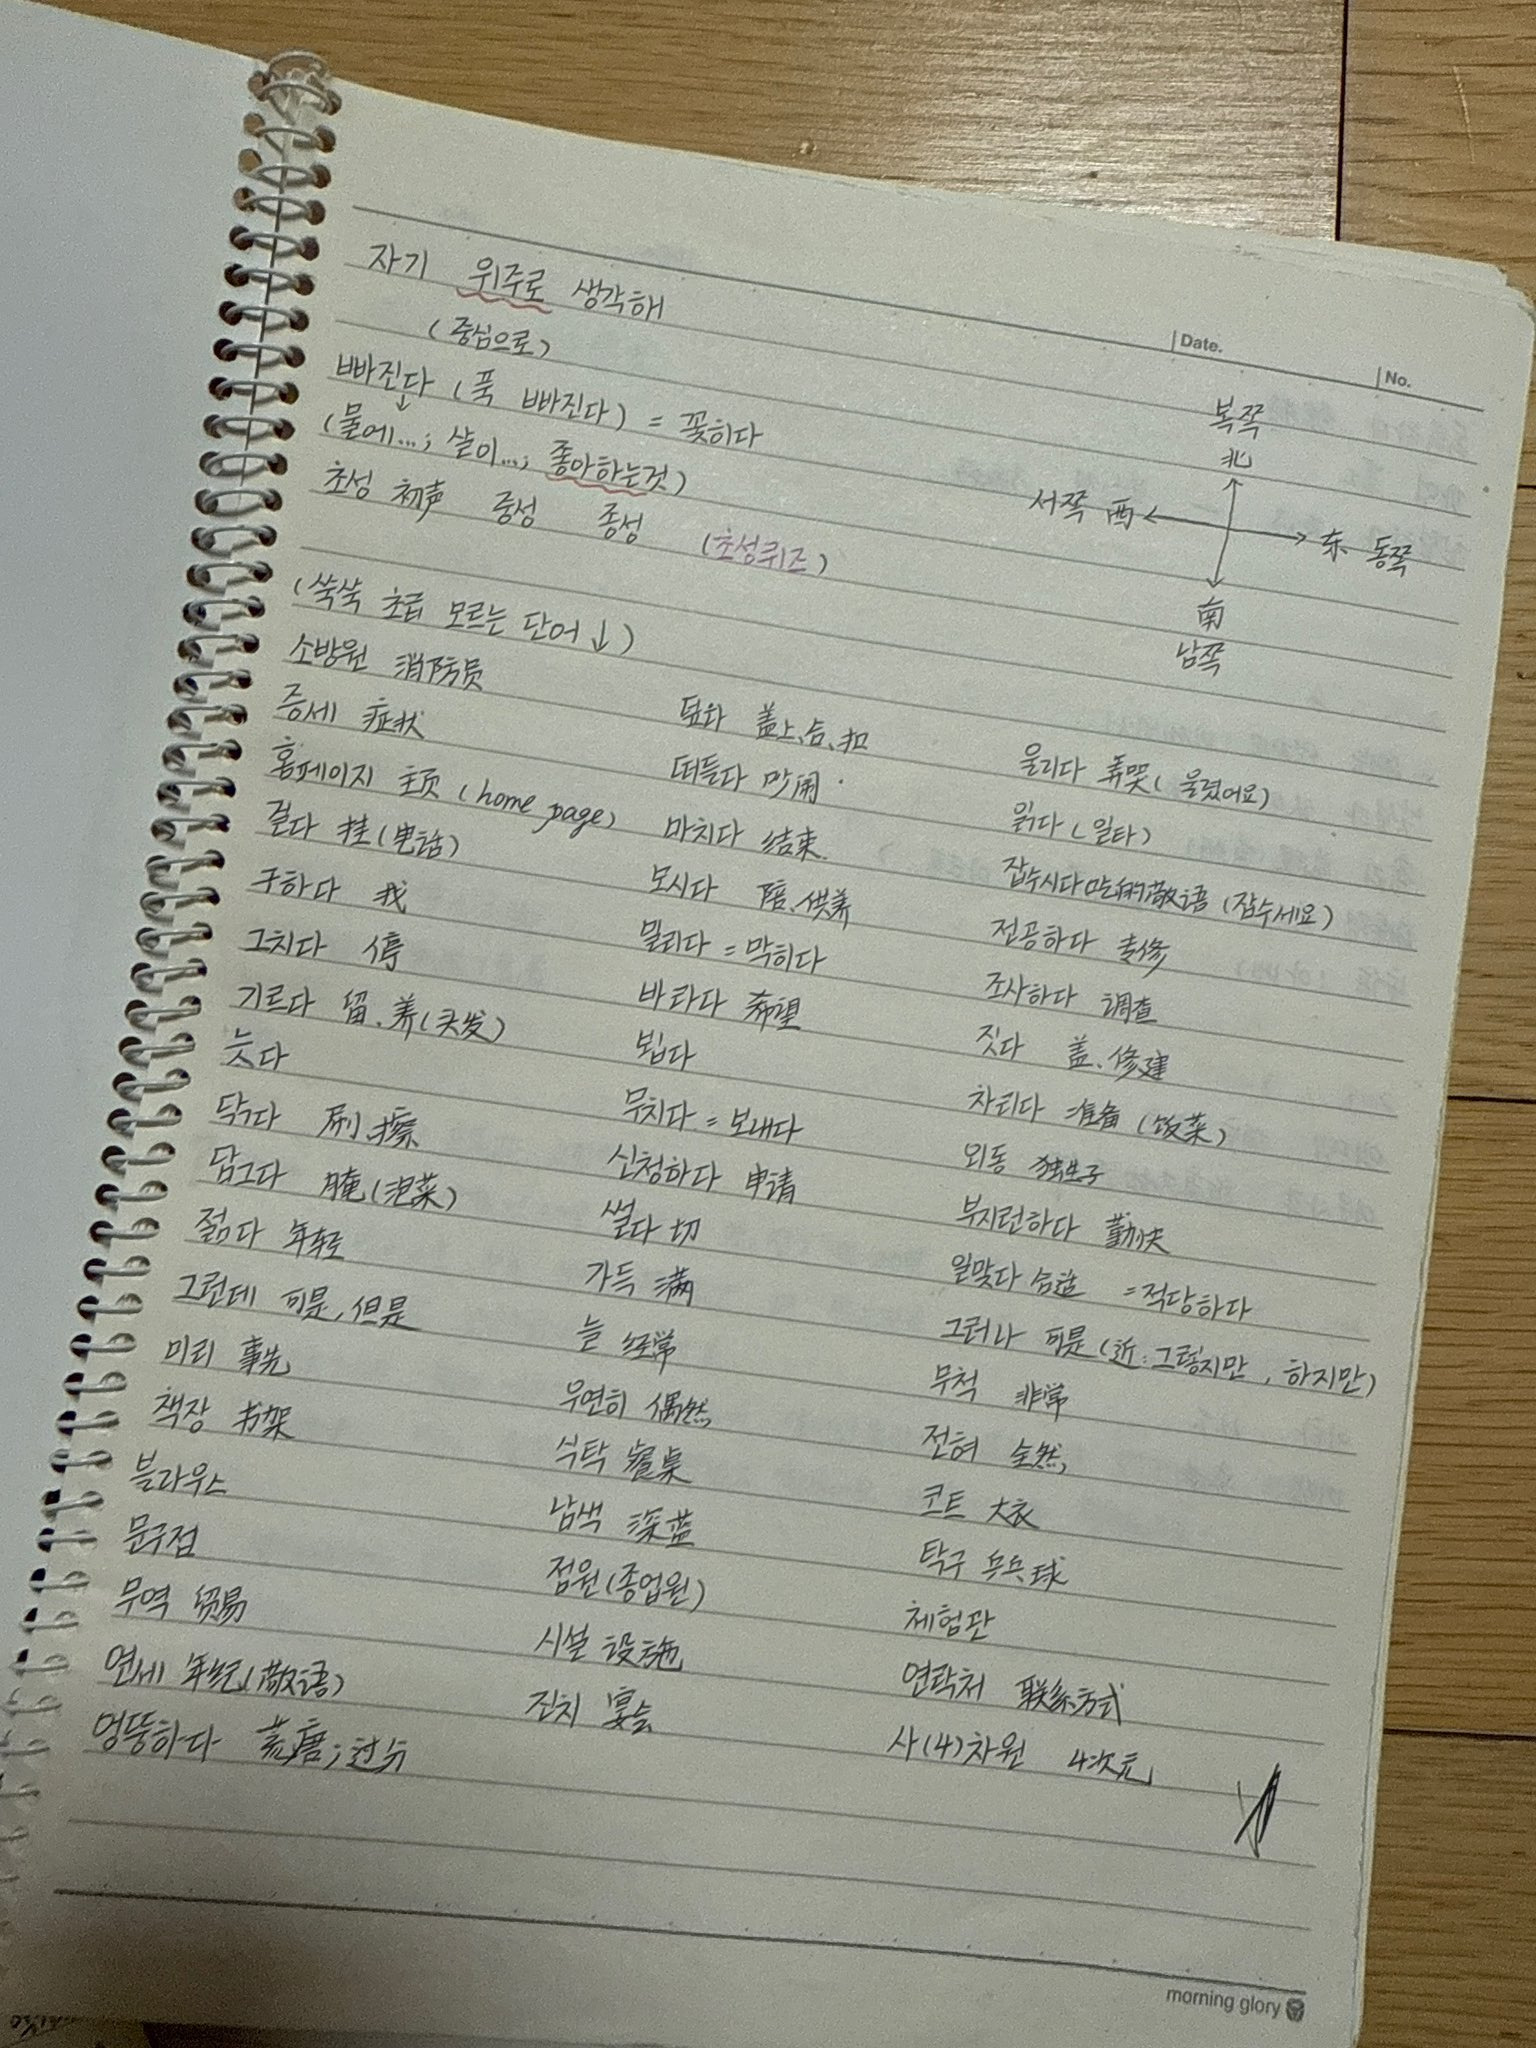 Date.
No.
자기 위주로 생각해
(중심으로)
빠진다 (푹 빠진다) = 꽂히다
(물에...; 살이...; 좋아하는것)
초성 初声 중성 종성 (초성퀴즈)
복쪽
北
서쪽 西
东 동쪽
南
남쪽
(쏙쏙 초급 모르는 단어↓)
소방원 消防员
증세 症状 덮다 盖上、合、扣 울리다 弄哭(울렸어요)
홈페이지 主页(home page) 떠들다 吵闹 읽다(일타)
걸다 挂(电话) 마치다 结束. 잡수시다 吃的敬语(잡수세요)
구하다 找 모시다 陪、供养 전공하다 专修
그치다 停 밀리다=막히다 조사하다 调查
기르다 留、养(头发) 바라다 希望 짓다 盖、修建
늣다 뵙다 차리다 准备(饭菜)
닦다 刷、擦 부치다=보내다 외동 独生子
담그다 腌(泡菜) 신청하다 申请 부지런하다 勤快
젊다 年轻 썰다 切 알맞다 合适 =적당하다
그런데 可是,但是 가득 满 그러나 可是(近:그렇지만, 하지만)
미리 事先 늘 经常 무척 非常
책장 书架 우연히 偶然 전혀 全然
블라우스 식탁 餐桌 코트 大衣
문구점 남색 深蓝 탁구 乒乓球
무역 贸易 점원(종업원) 체험관
연세 年纪(敬语) 시설 设施 연락처 联系方式
엉뚱하다 荒唐;过分 잔치 宴会 사(4)차원 4次元
morning glory